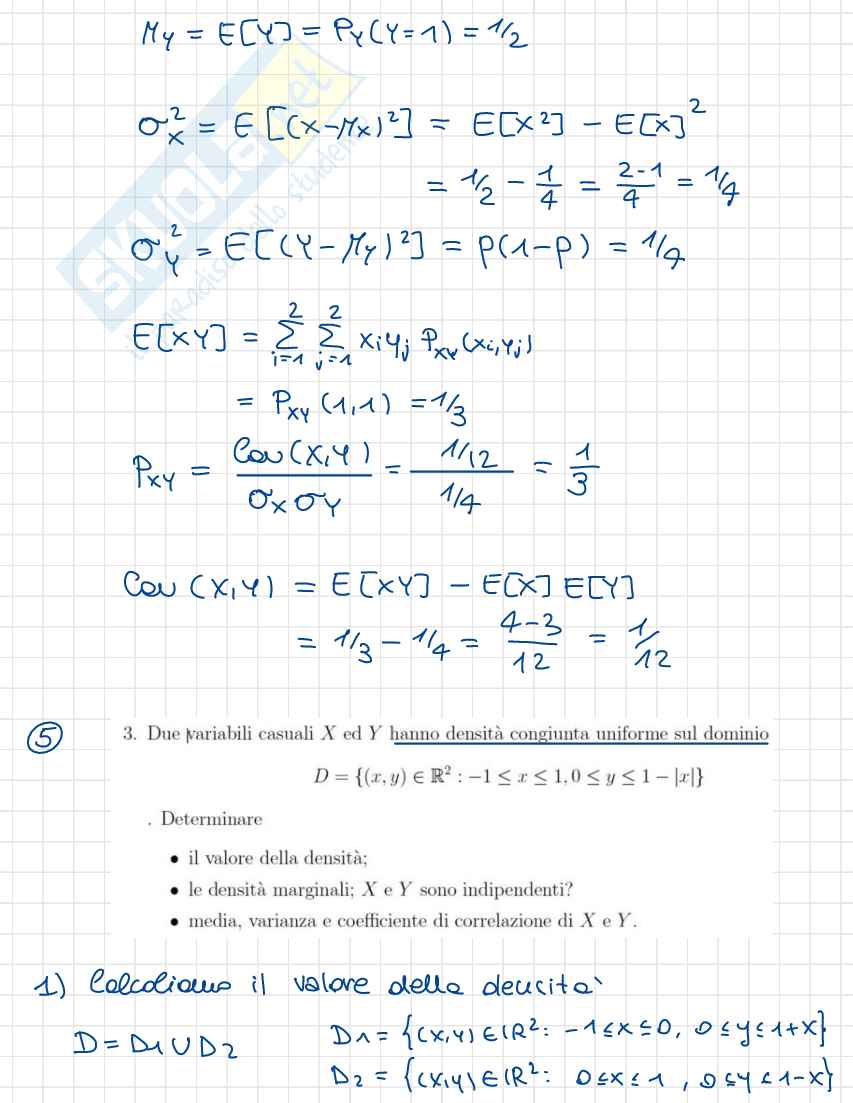 My = E[Y] = Py(Y=1) = 1/2
σ²x = E[(X-Mx)²] = E[X²] - E[X]²
= 1/2 - 1/4 = 2-1/4 = 1/4
σ²y = E[(Y-My)²] = p(1-p) = 1/4
E[XY] = Σ²i=1 Σ²j=1 xi yj Pxy(xi,yj)
= Pxy (1,1) = 1/3
Pxy = Cov(X,Y)/σx σy = 1/12 / 1/4 = 1/3
Cov (X,Y) = E[XY] - E[X] E[Y]
= 1/3 - 1/4 = 4-3/12 = 1/12
5 3. Due variabili casuali X ed Y hanno densità congiunta uniforme sul dominio
D = {(x, y) ∈ ℝ² : −1 ≤ x ≤ 1, 0 ≤ y ≤ 1 − |x|}
. Determinare
• il valore della densità;
• le densità marginali; X e Y sono indipendenti?
• media, varianza e coefficiente di correlazione di X e Y.
1) Calcoliamo il valore della deucita`
D = D1 ∪ D2 D1 = {(x,y) ∈ ℝ²: -1 ≤ x ≤ 0, 0 ≤ y ≤ 1+x}
D2 = {(x,y) ∈ ℝ²: 0 ≤ x ≤ 1, 0 ≤ y ≤ 1-x}